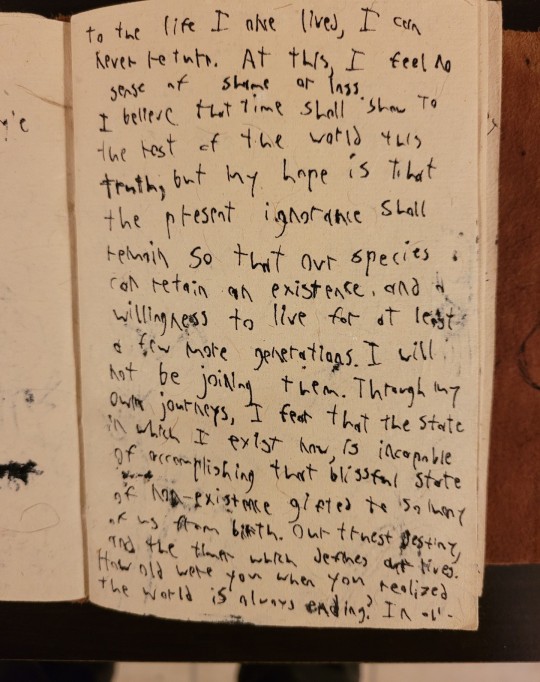 to the life I once lived, I can
never return. At this, I feel no
sense of shame or loss.
I believe that time shall show to
the rest of the world this
truth, but my hope is that
the present ignorance shall
remain so that our species
can retain an existence and a
willingness to live for at least
a few more generations. I will
not be joining them. Through my
own journeys, I fear that the state
in which I exist now, is incapable
of accomplishing that blissful state
of non-existence gifted to so many
of us from birth. Our truest destiny,
and the timer which defines our lives.
How old were you when you realized
the world is always ending? In